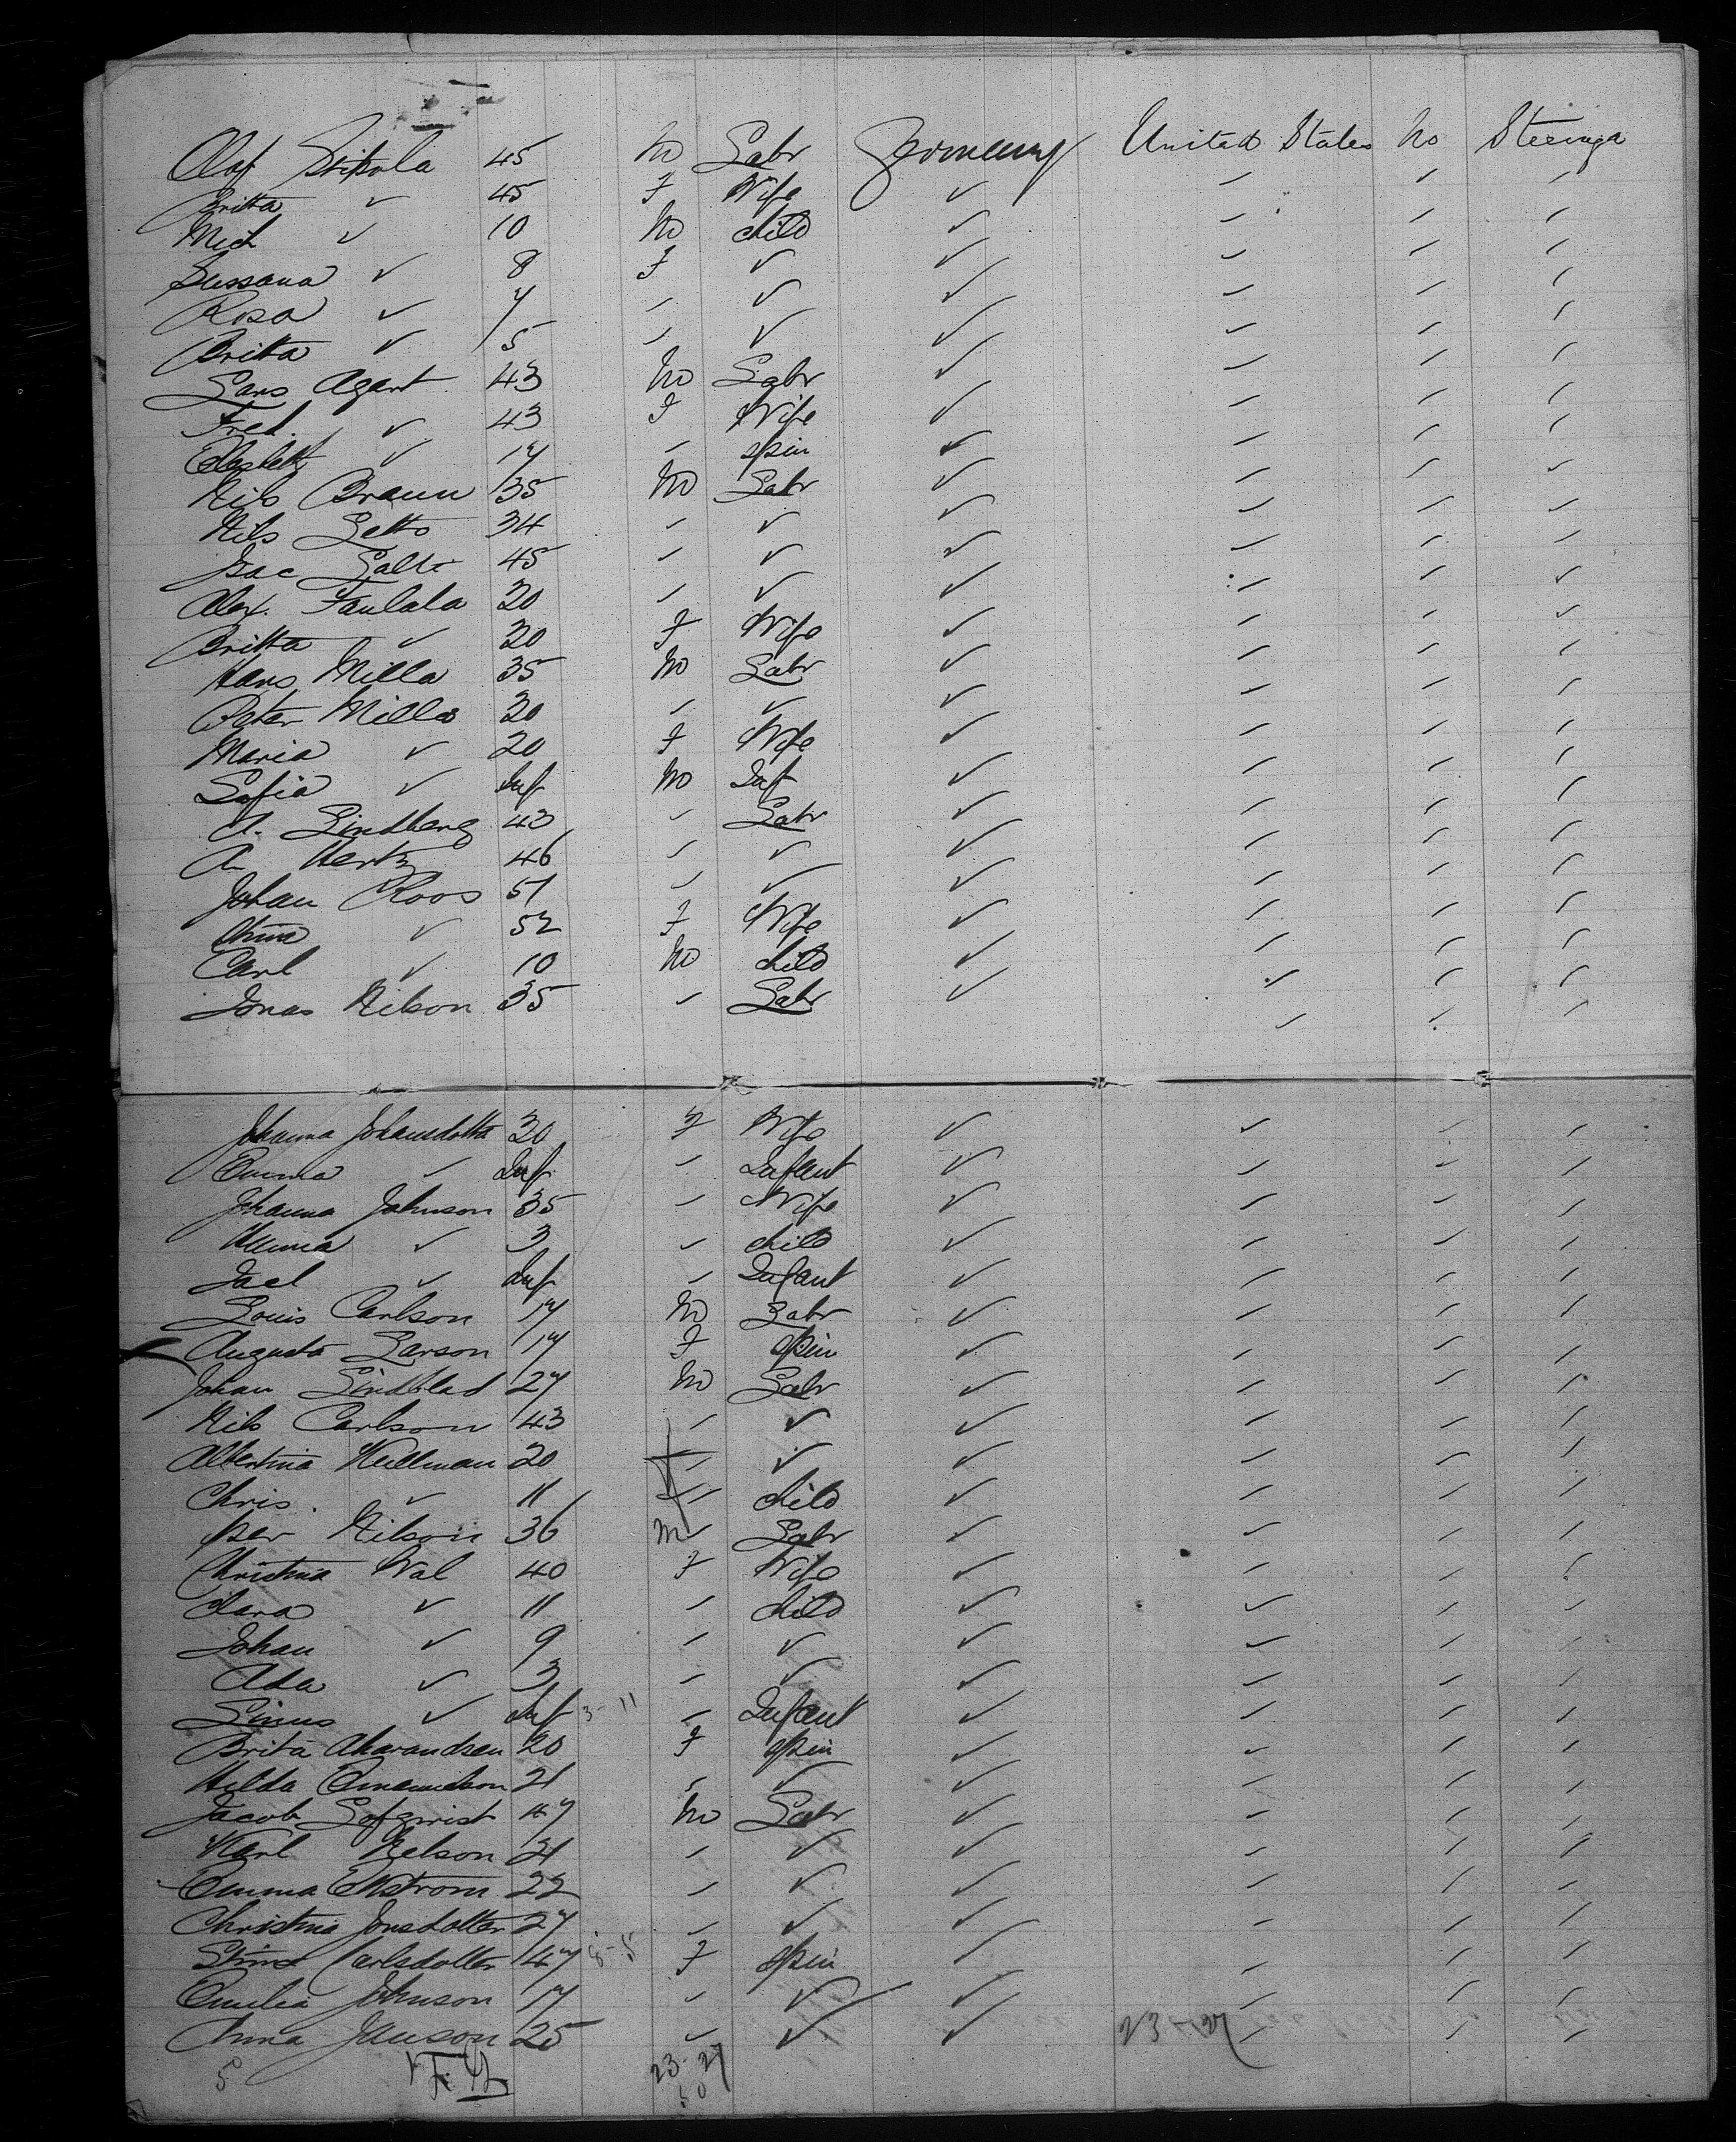 Olaf 45 M Labr Germany United States No Steerage
Britta ✓ 45 F Wife ✓
Mich ✓ 10 M child ✓
Sussana ✓ 8 F ✓ ✓
Rosa ✓ 7 ✓ ✓
Britta ✓ 5 ✓ ✓
Lars Agart 43 M Labr ✓
Fred. ✓ 43 F Wife ✓
✓ 17 spin ✓
Nils Braun 35 M Labr ✓
Nils Letto 34 ✓ ✓
Isac Salti 45 ✓ ✓
Alex. Faulala 30 ✓ ✓
Britta ✓ 30 F Wife ✓
Hans Milla 35 M Labr ✓
Peter Milla 30 ✓ ✓
Maria ✓ 20 F Wife ✓
Sofia ✓ Inf M Inf ✓
A. Lindberg 43 Labr ✓
A. Hertz 46 ✓ ✓
Johan Roos 51 ✓ ✓
✓ 52 F Wife ✓
Carl ✓ 10 M child ✓
Jonas Nilson 35 Labr ✓
Johanna Johansdotta 30 F Wife ✓
Emma ✓ Inf Infant ✓
Johanna Johnson 35 Wife ✓
Hanna ✓ 3 child ✓
Jael ✓ Inf Infant ✓
Louis Carlson 17 M Labr ✓
Augusta Larson 17 F spin ✓
Johan Lindblad 27 M Labr ✓
Nils Carlson 43 ✓ ✓
Albertina Kullman 20 F ✓ ✓
Chris. ✓ 11 F child ✓
Per Nilson 36 M Labr ✓
Christina Wal 40 F Wife ✓
Clara ✓ 11 child ✓
Johan ✓ 9 ✓ ✓
Ada ✓ 3 ✓ ✓
Linus ✓ Inf 3-11 Infant ✓
Brita 20 F spin ✓
Hilda 21 ✓ ✓
Jacob Lofqvist 47 M Labr ✓
Karl Nelson 21 ✓ ✓
Emma Ekstrom 22 ✓ ✓
Christina Jonsdotter 27 ✓ ✓
Stina Carlsdotter 47 8-5 F spin ✓
Emilia Johnson 17 ✓ ✓
Anna Janson 25 ✓ ✓ 23-27
5 23-27
50